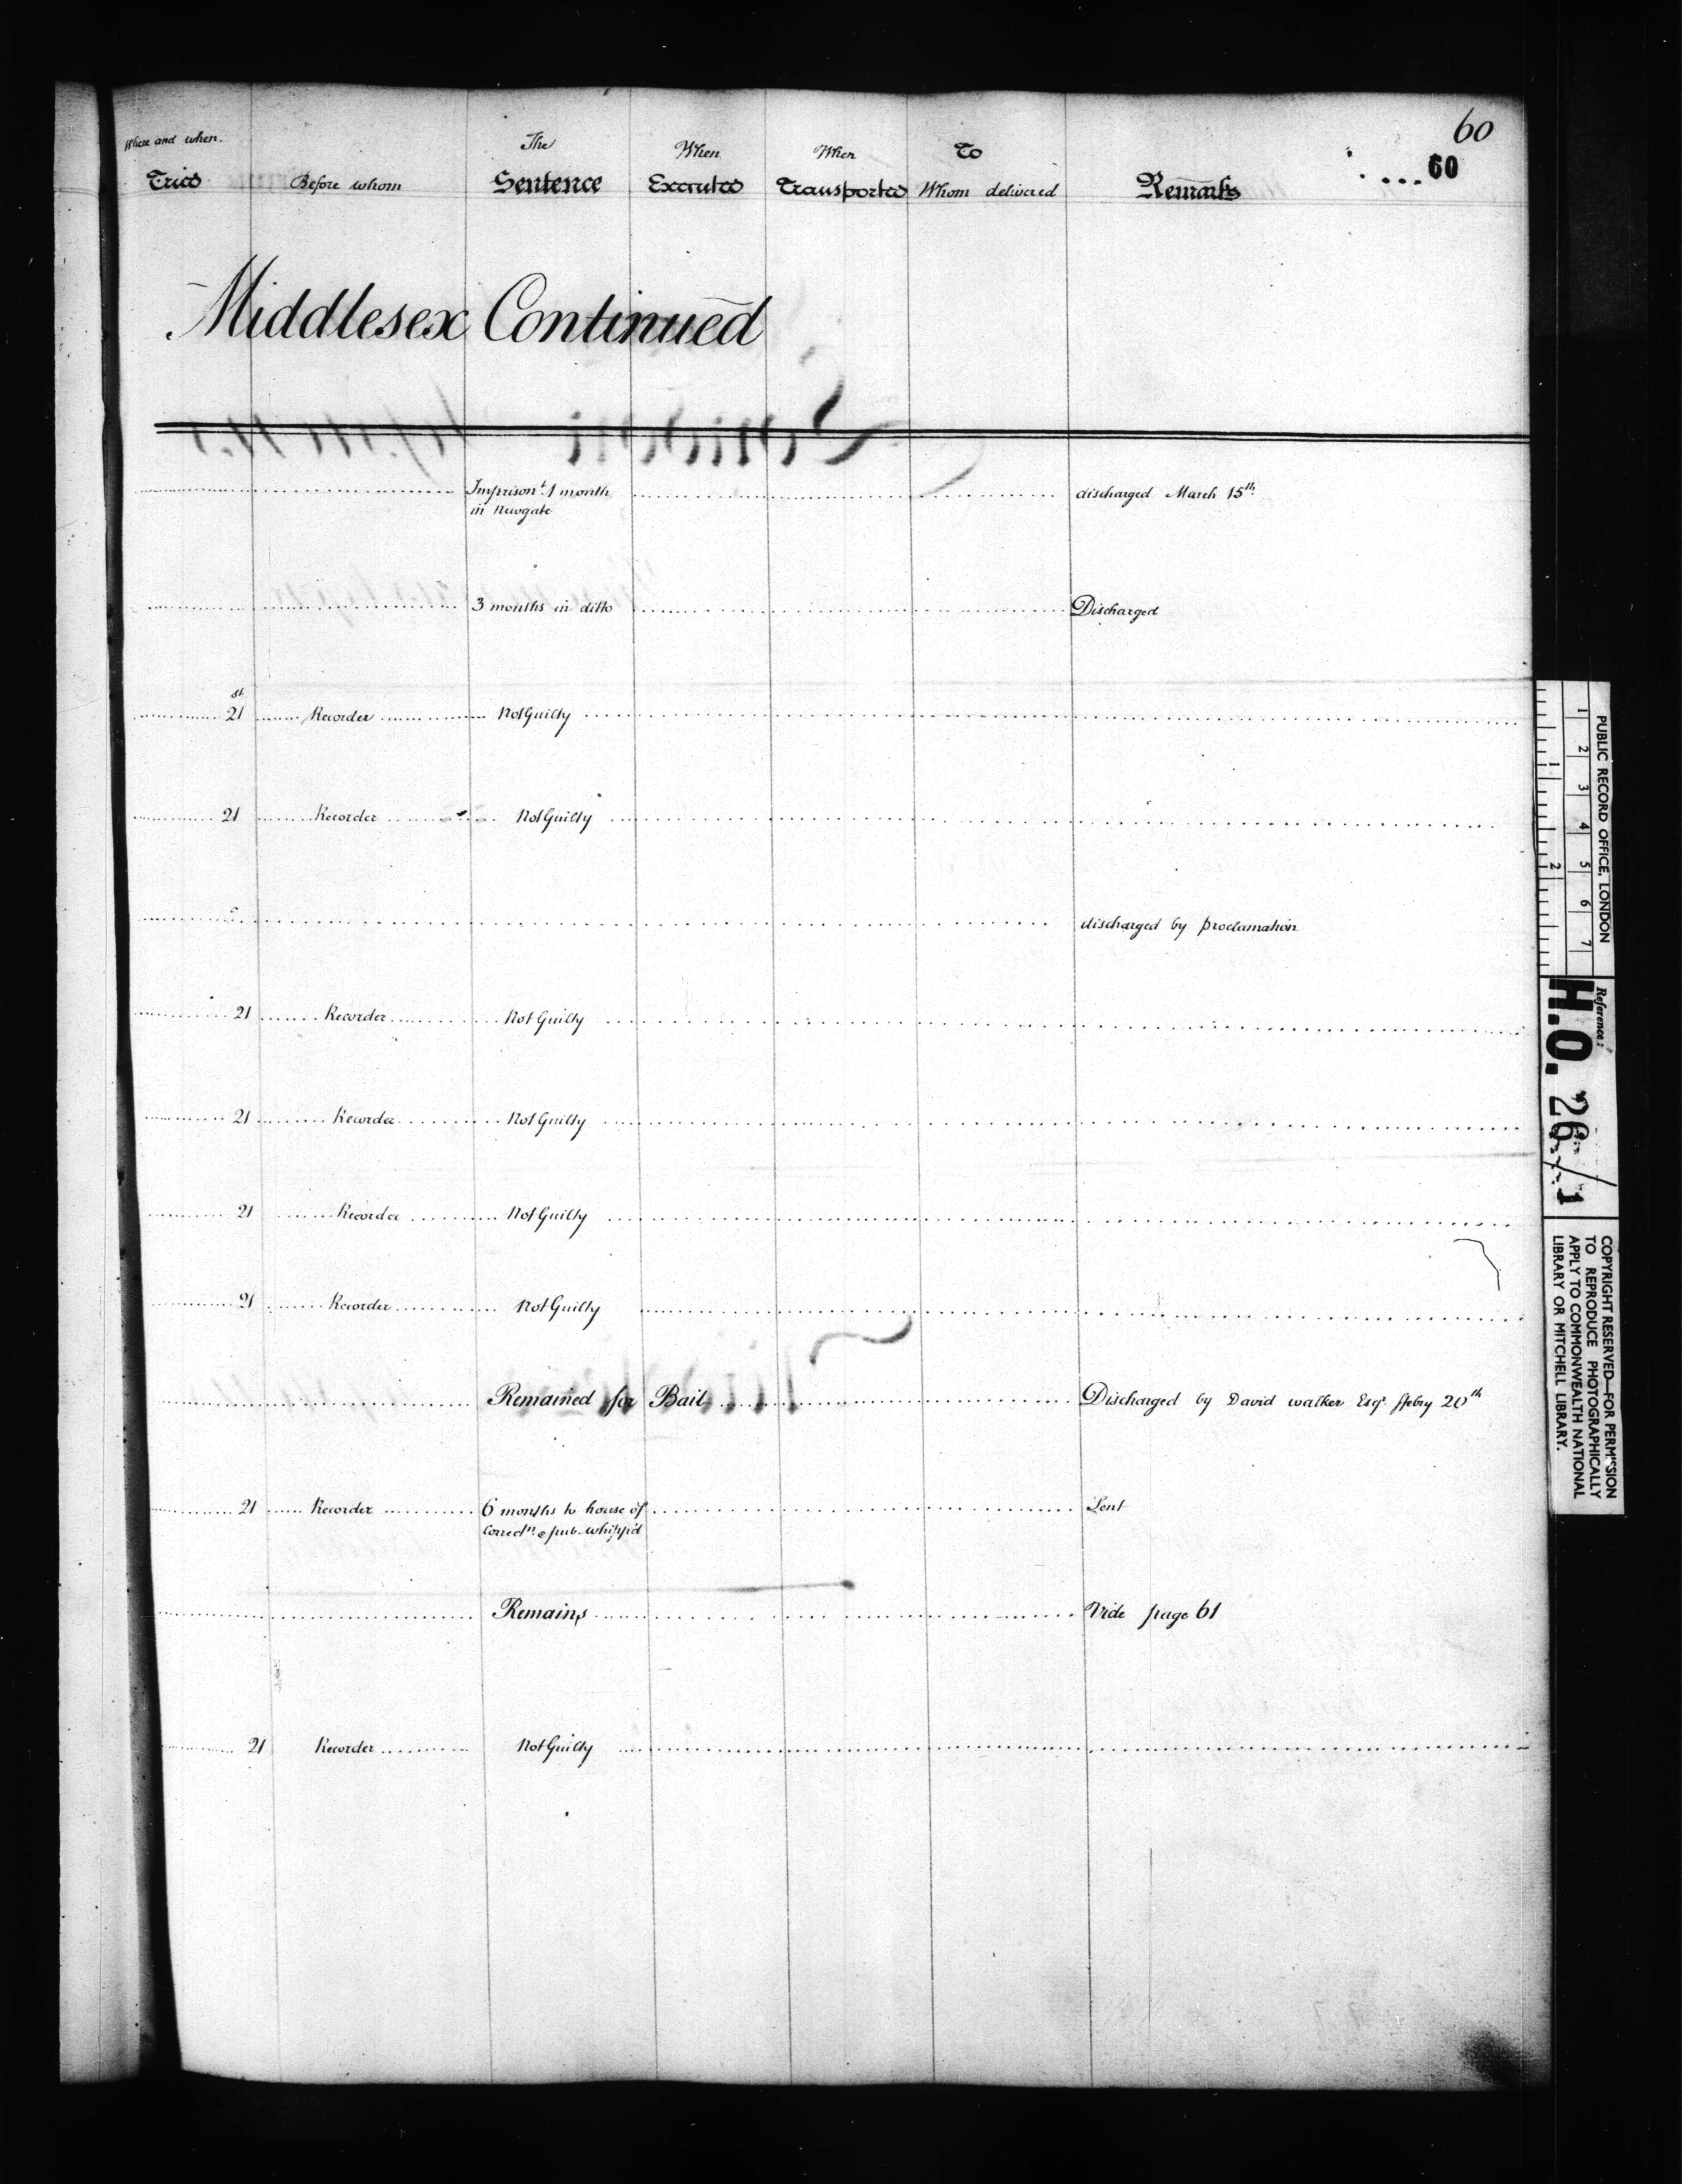 60
60
Where and when Tried
Before whom
The Sentence
When Executed
When Transported
To Whom delivered
Remarks
Middlesex Continued
Imprisont. 1 month discharged March 15th.
in Newgate
3 months in ditto Discharged
21st Recorder Not Guilty
21 Recorder Not Guilty
discharged by proclamation
21 Recorder Not Guilty
21 Recorder Not Guilty
21 Recorder Not Guilty
21 Recorder Not Guilty
Remained for Bail Discharged by David walker Esqr. ffebry 20th
21 Recorder 6 months to house of Sent
Correctn. & pub. whipp'd
Remains Vide page 61
21 Recorder Not Guilty
PUBLIC RECORD OFFICE, LONDON
1 2 3 4 5 6 7
1 2
Reference:
H.O. 26/1
COPYRIGHT RESERVED—FOR PERMISSION
TO REPRODUCE PHOTOGRAPHICALLY
APPLY TO COMMONWEALTH NATIONAL
LIBRARY OR MITCHELL LIBRARY.